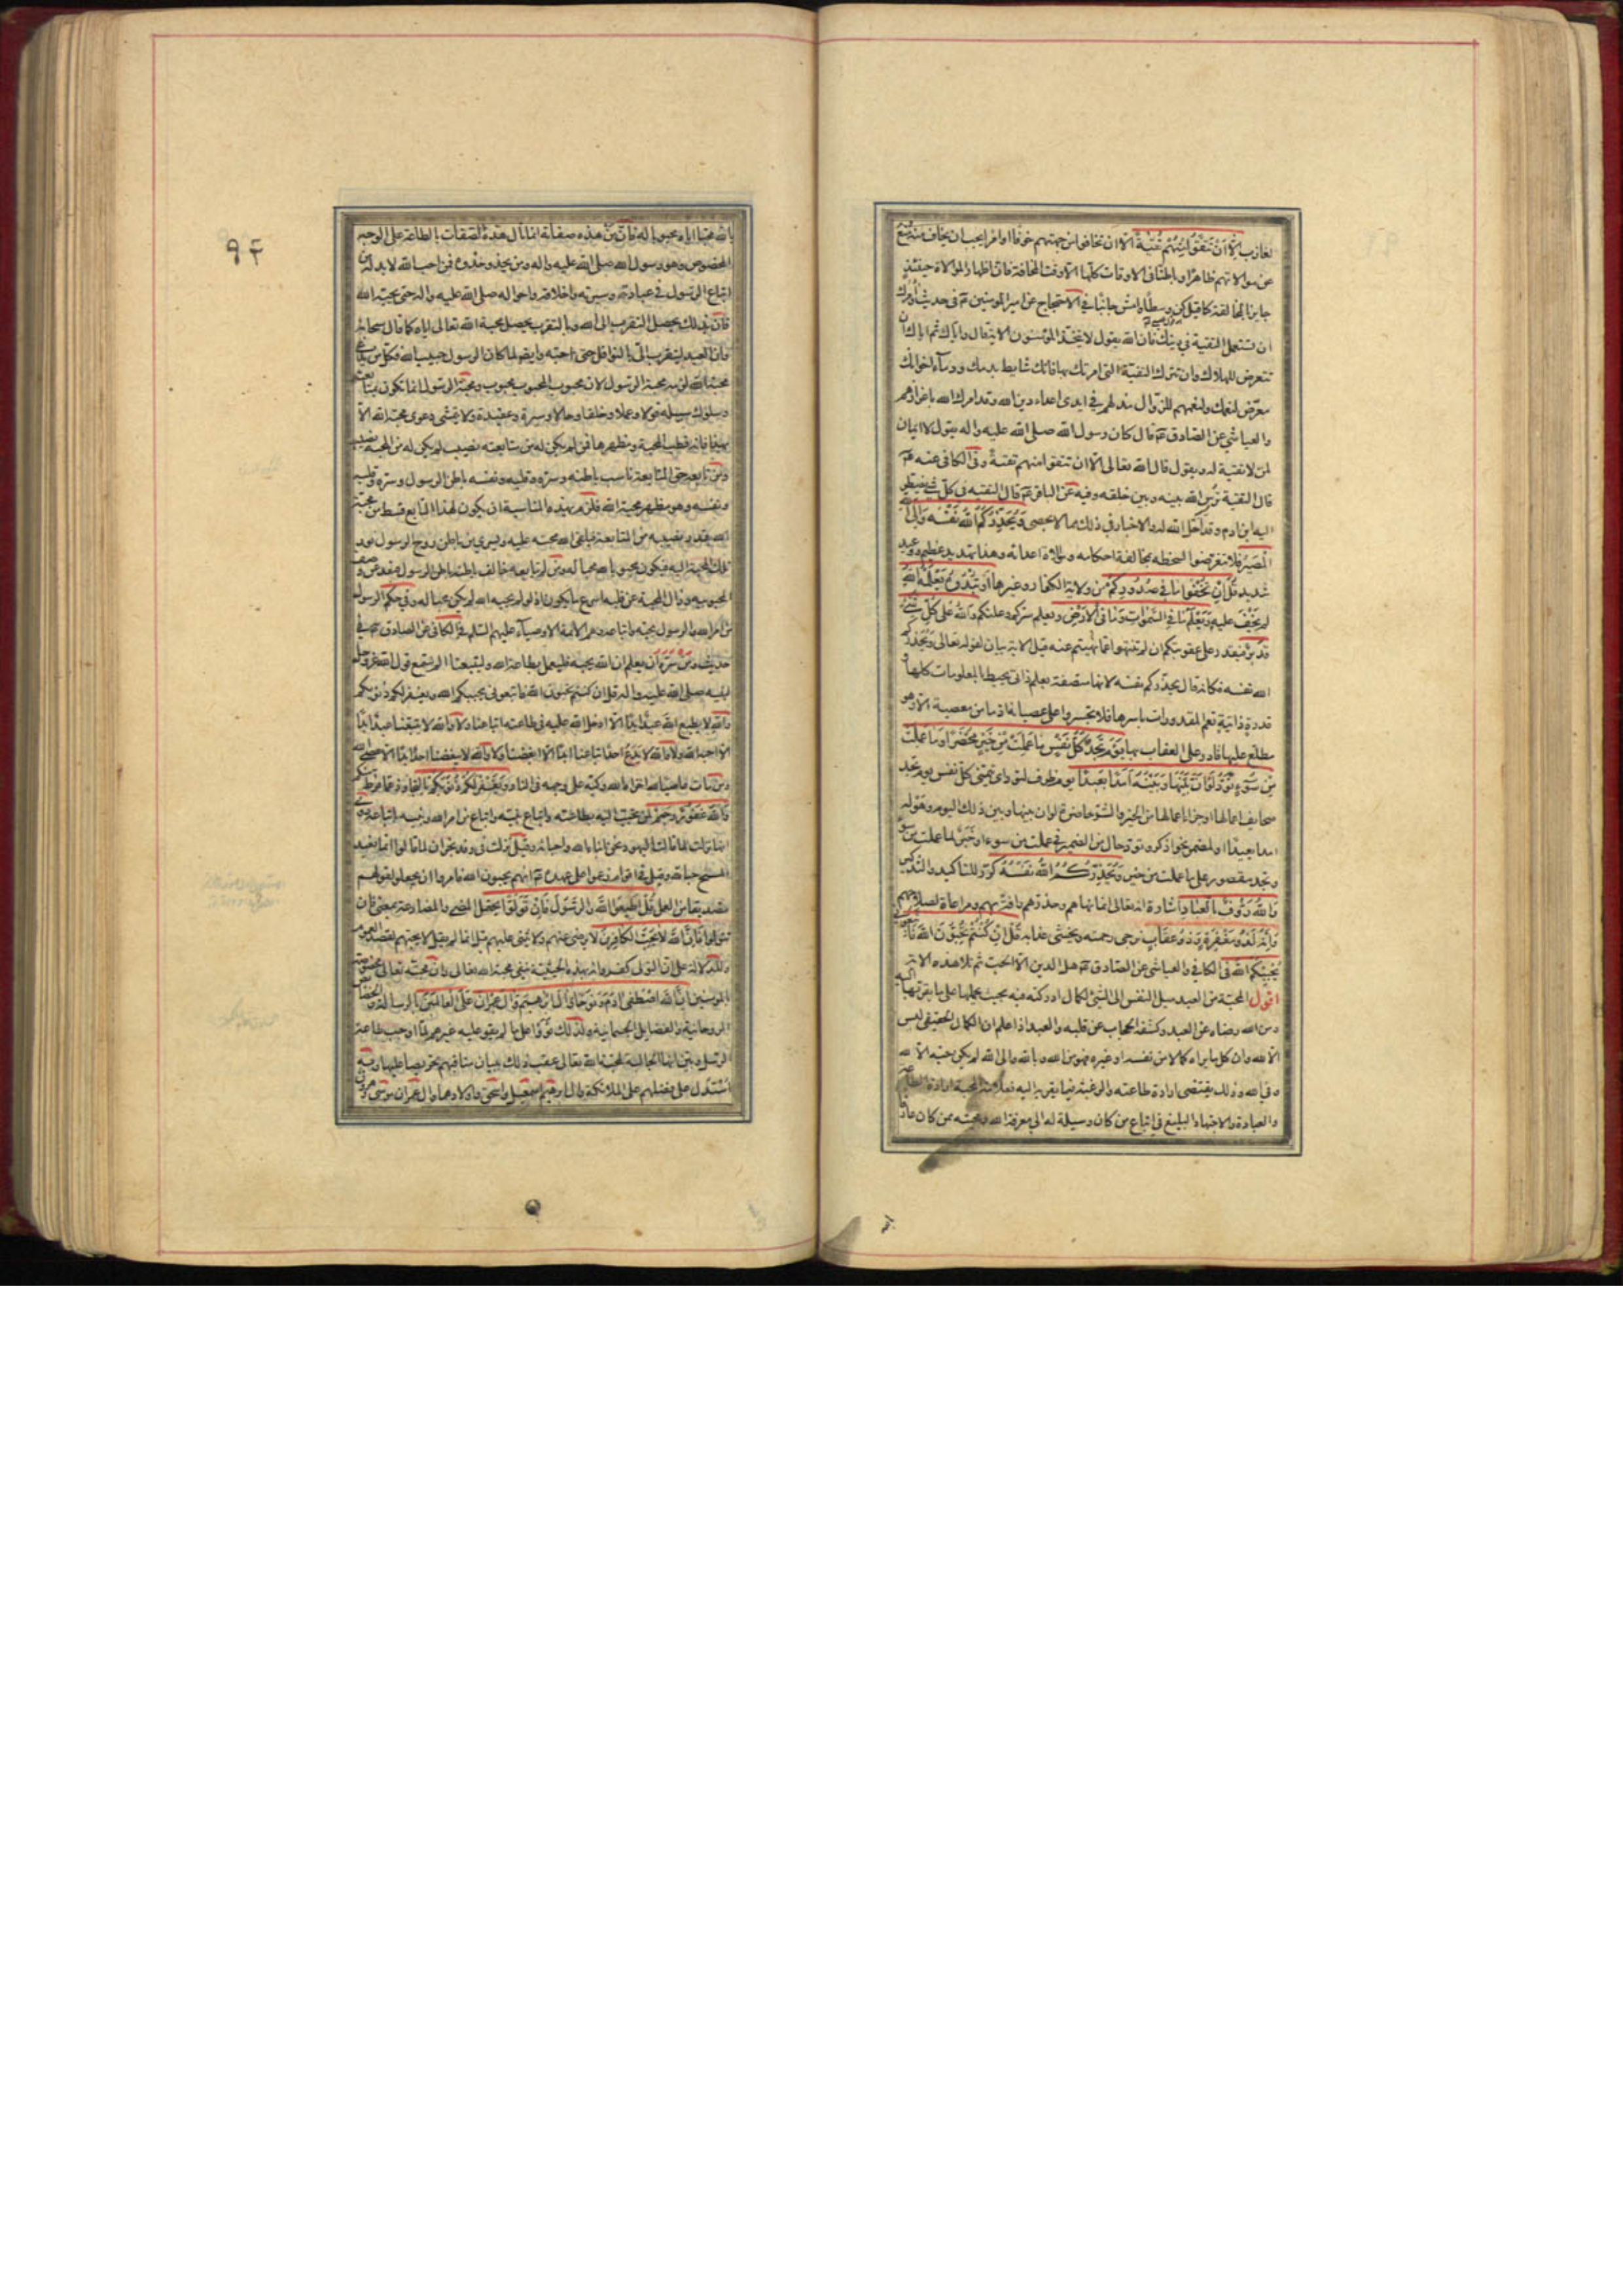 لعازب الا ان تتقوا منهم تقية الا ان تخافوا من جهتهم خوفا او امرا يجب ان يخاف منه منع
عن موالاتهم ظاهرا وباطنا في الاوقات كلها الا وقت المخافة فان اظهار الموالاة حينئذ
جايز بالمخالفة كما قيل كن وسطا وامش جانبا في الاحتجاج عن امير المؤمنين ع في حديث وامرك
ان تستعمل التقية في دينك فان الله يقول لا يتخذ المؤمنون الاية قال واياك ثم اياك ان
تتعرض للهلاك وان تترك التقية التي امرتك بها فانك شايط بدمك ودماء اخوانك
معرض لنعمك ولنعمهم للزوال مذلهم في ايدي اعداء دين الله وقد امرك الله باعزازهم
والعياشي عن الصادق ع قال كان رسول الله صلى الله عليه واله يقول لا ايمان
لمن لا تقية له ويقول قال الله تعالى الا ان تتقوا منهم تقية وفي الكافي عنه ع
قال التقية ترس الله بينه وبين خلقه وفيه عن الباقر ع قال التقيه في كل شئ يضطر
اليه ابن ادم وقد احل الله له والاخبار في ذلك مما لا يحصى ويحذركم الله نفسه والى الله
المصير فلا تتعرضوا لسخطه بمخالفة احكامه وموالاة اعدائه وهذا تهديد عظيم ووعيد
شديد قل ان تخفوا ما في صدوركم من ولاية الكفار وغيرها او تبدوه يعلمه الله
لم يخف عليه ويعلم ما في السموات وما في الارض ويعلم سركم وعلنكم والله على كل شئ
قدير فيقدر على عقوبتكم ان لم تنتهوا عما نهيتم عنه قيل الاية بيان لقوله تعالى ويحذركم
الله نفسه فكانه قال يحذركم نفسه لانها متصفة بعلم ذاتي يحيط بالمعلومات كلها و
قدرة ذاتية تعم المقدورات باسرها فلا تجسروا على عصيانه اذ ما من معصية الا وهو
مطلع عليها قادر على العقاب بها يوم تجد كل نفس ما عملت من خير محضرا وما عملت
من سوء تود لو ان بينها وبينه امدا بعيدا يوم ظرف لتود اي تتمنى كل نفس يوم تجد
صحايف اعمالها او جزاء اعمالها من الخير والشر حاضرة لو ان بينها وبين ذلك اليوم وهوله
امدا بعيدا او لمضمر نحو اذكر وتود حال من الضمير في عملت من سوء او خبر لما عملت من سوء
وتجد مقصور على ما عملت من خير ويحذركم الله نفسه كرر للتاكيد والتذكير
والله رؤف بالعباد اشارة انه تعالى انما نهاهم وحذرهم رافة بهم ومراعاة لصلاحهم
وانه لذو مغفرة وذو عقاب ترجى رحمته ويخشى عذابه قل ان كنتم تحبون الله فاتبعوني
يحببكم الله في الكافي والعياشي عن الصادق ع هل الدين الا الحب ثم تلا هذه الاية
اقول المحبة من العبد ميل النفس الى الشئ لكمال ادركته فيه بحيث يحملها على ما يقربها اليه
ومن الله رضاه عن العبد وكشفه الحجاب عن قلبه والعبد اذا علم ان الكمال الحقيقي ليس
الا لله وان كل ما يراه كمالا من نفسه او غيره فهو من الله وبالله والى الله لم يكن حبه الا لله
وفي الله وذلك يقتضي ارادة طاعته والرغبة فيما يقربه اليه فعلامة المحبة ارادة الطاعة
والعبادة والاجتهاد البليغ في اتباع من كان وسيلة له الى معرفة الله ومحبته ممن كان عارفا
٩٤
بالله محبا اياه محبوبا له فان من هذه صفاته انما نال هذه الصفات بالطاعة على الوجه
المخصوص وهو رسول الله صلى الله عليه واله ومن يحذو حذوه فمن احب الله لا بد له من
اتباع الرسول في عبادته وسيرته واخلاقه واحواله صلى الله عليه واله حتى يحبه الله
فان بذلك يحصل التقرب الى الله وبالتقرب يحصل محبة الله تعالى اياه كما قال سبحانه
وان العبد ليتقرب الى بالنوافل حتى احبه وايضا لما كان الرسول حبيب الله فكل من يدعي
محبة الله لزمه محبة الرسول لان محبوب المحبوب محبوب ومحبة الرسول انما تكون بمتابعته
وسلوك سبيله قولا وعملا وخلقا وحالا وسيرة وعقيدة ولا يتمشى دعوى محبة الله الا
بهذا فانه قطب المحبة ومظهرها فمن لم يكن له من متابعته نصيب لم يكن له من المحبة نصيب
ومن تابعه حق المتابعة ناسب باطنه وسره وقلبه ونفسه باطن الرسول وسره وقلبه
ونفسه وهو مظهر محبة الله فلزم بهذه المناسبة ان يكون لهذا المتابع قسط من محبة
الله بقدر نصيبه من المتابعة فيلقى الله محبته عليه ويسري من باطن روح الرسول نور
تلك المحبة اليه فيكون محبوبا لله محبا له ومن لم يتابعه خالف باطنه باطن الرسول فبعد عن وصف
المحبوبية وزال المحبة عن قلبه اسرع ما يكون اذ لو لم يحبه الله لم يكن محبا له وفي حكم الرسول
من امر الله والرسول بحبه واتباعه وهم الائمة الاوصياء عليهم السلم في الكافي عن الصادق ع في
حديث ومن سره ان يعلم ان الله يحبه فليعمل بطاعة الله وليتبعنا الم يسمع قول الله عز وجل
لنبيه صلى الله عليه واله قل ان كنتم تحبون الله فاتبعوني يحببكم الله ويغفر لكم ذنوبكم
والله لا يطيع الله عبد ابدا الا ادخل الله عليه في طاعته اتباعنا ولا والله لا يتبعنا عبد ابدا
الا احبه الله ولا والله لا يدع احد اتباعنا ابدا الا ابغضنا ولا والله لا يبغضنا احد ابدا الا عصى الله
ومن مات عاصيا لله اخزاه الله وكبه على وجهه في النار ويغفر لكم ذنوبكم بالتجاوز عما فرط منكم
والله غفور رحيم لمن تحبب اليه بطاعته واتباع نبيه واتباع من امر الله ونبيه باتباعه روي
انها نزلت لما قالت اليهود نحن ابناء الله واحباؤه وقيل نزلت في وفد نجران لما قالوا انما نعبد
المسيح حبا لله وقيل في اقوام زعموا على عهده ع انهم يحبون الله فامروا ان يجعلوا لقولهم
تصديقا من العمل قل اطيعوا الله والرسول فان تولوا يحتمل المضي والمضارعة بمعنى فان
تتولوا فان الله لا يحب الكافرين لا يرضى عنهم ولا يثني عليهم قيل انما لم يقل لا يحبهم لقصد العموم
والدلالة على ان التولي كفر وانه بهذه الحيثية ينفي محبة الله تعالى وان محبته تعالى مخصوصة
بالمؤمنين ان الله اصطفى ادم ونوحا وال ابرهيم وال عمران على العالمين بالرسالة والخصائص
الروحانية والفضايل الجسمانية ولذلك قووا على ما لم يقو عليه غيرهم لما اوجب طاعة
الرسل وبين انها الجالبة لمحبة الله تعالى عقب ذلك ببيان مناقبهم تحريصا عليها وبه
استدل على فضلهم على الملائكة وال ابرهيم اسمعيل واسحق واولادهما وال عمران موسى وهرون